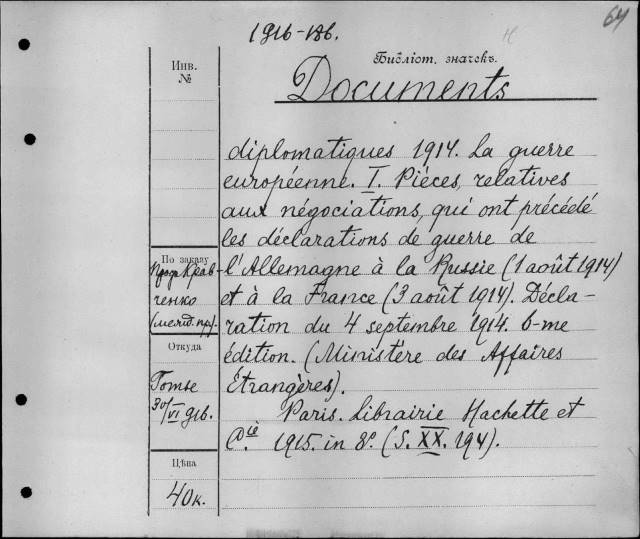 64
1916-186.
Инв.
№
Библіот. значекъ.
Documents
diplomatiques 1914. La guerre
européenne. I. Pièces, relatives
aux négociations, qui ont précédé
les déclarations de guerre de
l'Allemagne à la Russie (1 août 1914)
et à la France (3 août 1914). Décla-
ration du 4 septembre 1914. 6-me
édition. (Ministère des Affaires
Étrangères).
Paris. Librairie Hachette et
Cie. 1915. in 8º. (S. XX. 194).
По заказу
Проф. Крав-
ченко
(межд. пр).
Откуда
Готье
30/VI 916.
Цѣна
40к.